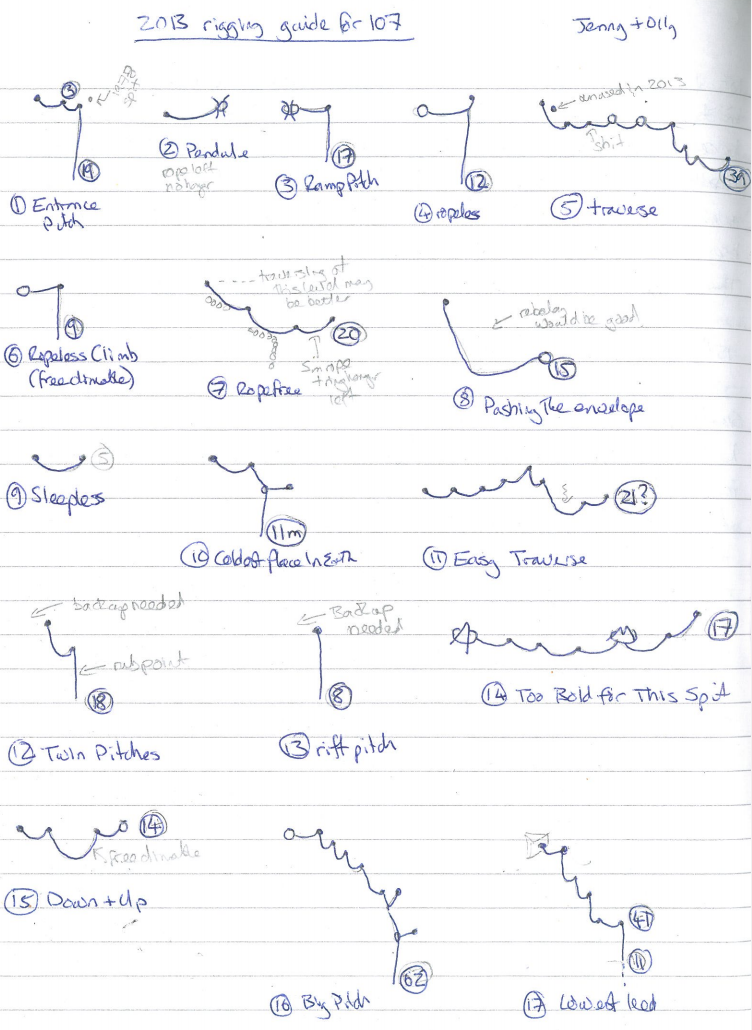 2013 rigging guide for 107
Jenny + Olly
3
19
① Entrance
Pitch
② Pendule
rope left
no hanger
17
③ Ramp Pitch
12
④ ropeless
unused in 2013
shit
39
⑤ traverse
9
⑥ Ropeless Climb
(freeclimbable)
traversing at
this level may
be better
20
5m rope
+ hanger
left
⑦ Ropefree
rebelay
would be good
15
⑧ Pushing The envelope
5
⑨ Sleepless
11m
⑩ Coldest place In Earth
21?
⑪ Easy Traverse
backup needed
rub point
18
⑫ Twin Pitches
Backup
needed
8
⑬ rift pitch
17
⑭ Too Bold for This Spit
14
freeclimbable
⑮ Down + Up
62
⑯ Big Pitch
47
⑰ Lowest lead